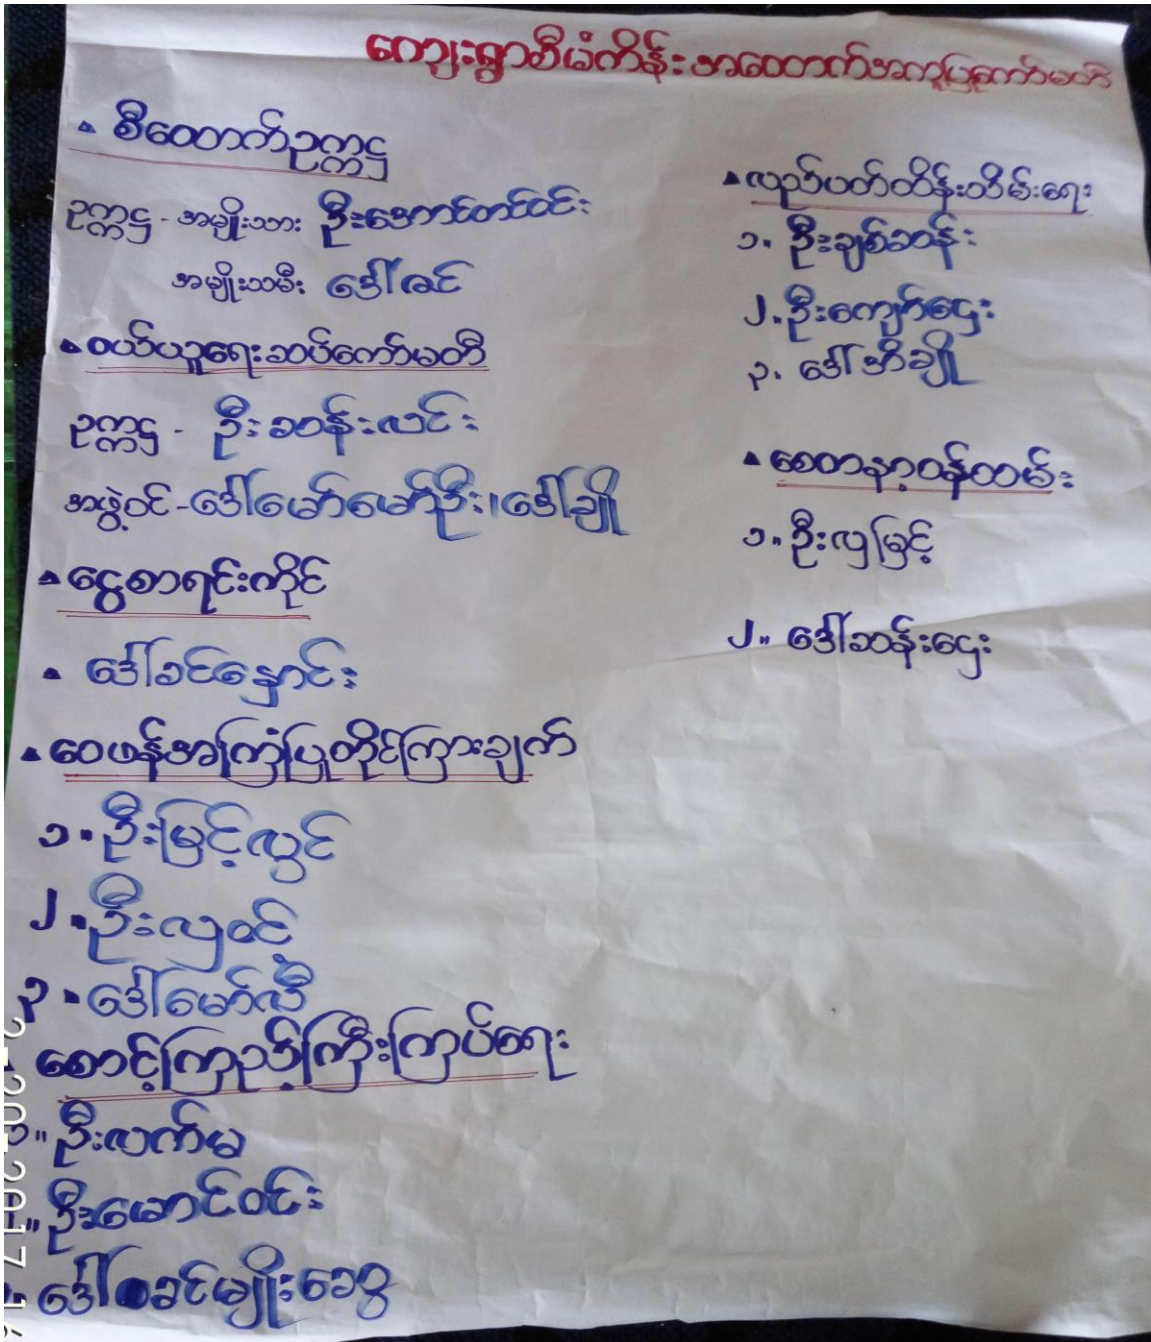 ကျေးရွာစီမံကိန်းအထောက်အကူပြုကော်မတီ
စီထောက်ဥက္ကဋ္ဌ
ဥက္ကဋ္ဌ - အမျိုးသား ဦးအောင်တင်ဝင်း
အမျိုးသမီး ဒေါ်ဇင်
ဝယ်ယူရေးဆပ်ကော်မတီ
ဥက္ကဋ္ဌ - ဦးဆန်းလင်း
အဖွဲ့ဝင် - ဒေါ်မော်မော်ဦး၊ ဒေါ်ချို
ငွေစာရင်းကိုင်
ဒေါ်ခင်နှောင်း
ဝေဖန်အကြံပြုတိုင်ကြားချက်
၁။ ဦးမြင့်လွင်
၂။ ဦးလှဝင့်
၃။ ဒေါ်မော်လီ
စောင့်ကြည့်ကြီးကြပ်ရေး
၁။ ဦးလက်မ
ဦးမောင်ဝင်း
ဒေါ်ခင်မျိုးဆွေ
လည်ပတ်ထိန်းသိမ်းရေး
၁။ ဦးချစ်ဆန်း
၂။ ဦးကျော်ဌေး
၃။ ဒေါ်အိချို
စေတနာ့ဝန်ထမ်း
၁။ ဦးလှမြင့်
၂။ ဒေါ်ဆန်းဌေး